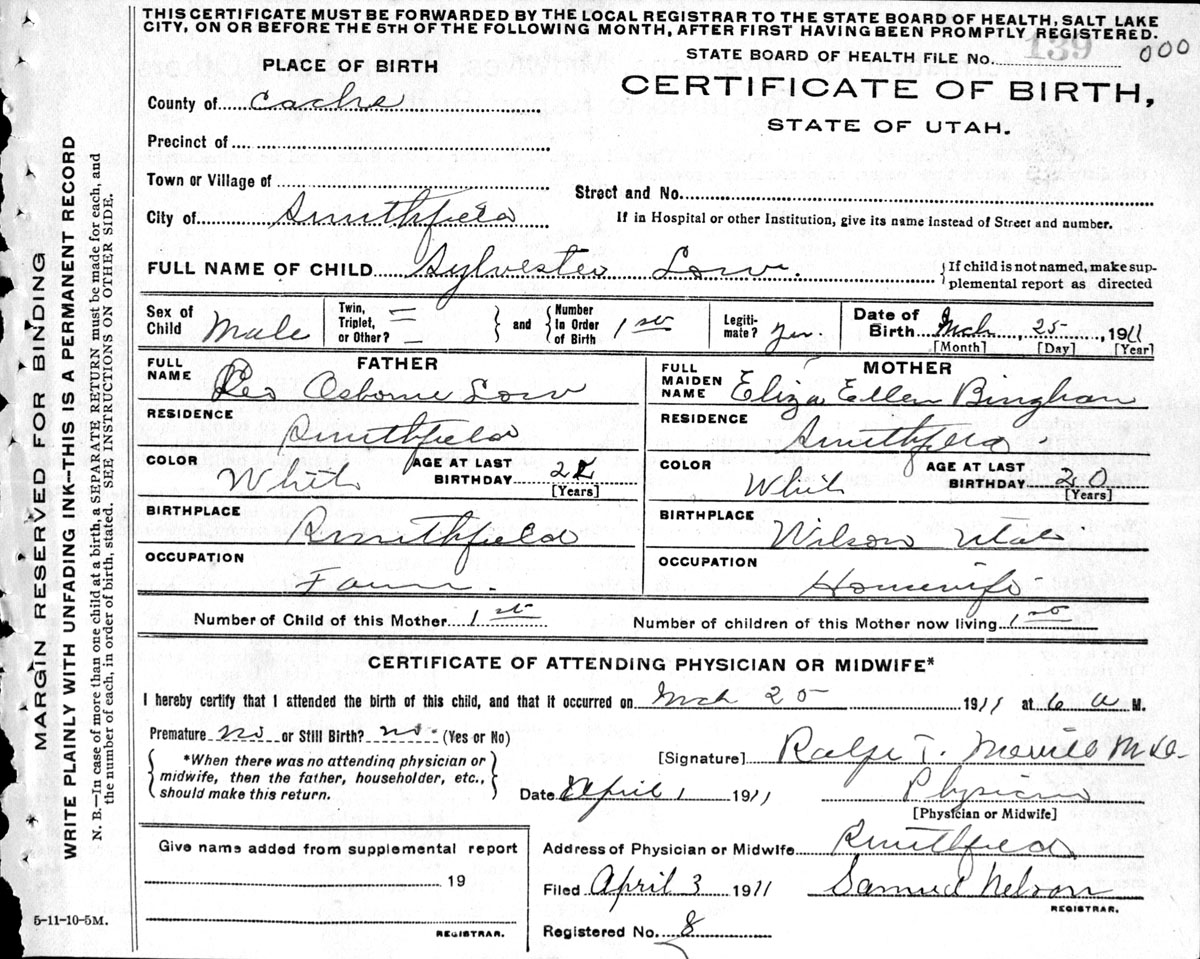 THIS CERTIFICATE MUST BE FORWARDED BY THE LOCAL REGISTRAR TO THE STATE BOARD OF HEALTH, SALT LAKE
CITY, ON OR BEFORE THE 5TH OF THE FOLLOWING MONTH, AFTER FIRST HAVING BEEN PROMPTLY REGISTERED.
139
000
STATE BOARD OF HEALTH FILE No.
PLACE OF BIRTH
CERTIFICATE OF BIRTH,
STATE OF UTAH.
County of Cache
Precinct of
Town or Village of
Street and No.
City of Smithfield
If in Hospital or other Institution, give its name instead of Street and number.
FULL NAME OF CHILD Sylvester Low.
If child is not named, make sup-
plemental report as directed
Sex of Child Male
Twin, Triplet, or Other?
and
Number In Order of Birth 1st
Legiti-mate? yes.
Date of Birth Mch 25 1911
[Month] [Day] [Year]
FATHER
FULL NAME Osborne Low
RESIDENCE Smithfield
COLOR White
AGE AT LAST BIRTHDAY
[Years]
BIRTHPLACE Smithfield
OCCUPATION
MOTHER
FULL MAIDEN NAME Eliza Ellen Bingham
RESIDENCE Smithfield
COLOR White
AGE AT LAST BIRTHDAY 20
[Years]
BIRTHPLACE Wilson Utah
OCCUPATION Housewife
Number of Child of this Mother 1st
Number of children of this Mother now living 1st
CERTIFICATE OF ATTENDING PHYSICIAN OR MIDWIFE*
I hereby certify that I attended the birth of this child, and that it occurred on Mch 25 1911 at 6 a M.
Premature no or Still Birth? no. (Yes or No)
*When there was no attending physician or
midwife, then the father, householder, etc.,
should make this return.
[Signature] Ralph T. Merrill M.D.
Date April 1 1911 Physician
[Physician or Midwife]
Give name added from supplemental report
19
REGISTRAR.
Address of Physician or Midwife Smithfield
Filed April 3 1911 Samuel Nelson
REGISTRAR.
Registered No. 8
5-11-10-5M.
* MARGIN RESERVED FOR BINDING
WRITE PLAINLY WITH UNFADING INK—THIS IS A PERMANENT RECORD
N. B.—In case of more than one child at a birth, a SEPARATE RETURN must be made for each, and
the number of each, in order of birth, stated. SEE INSTRUCTIONS ON OTHER SIDE.